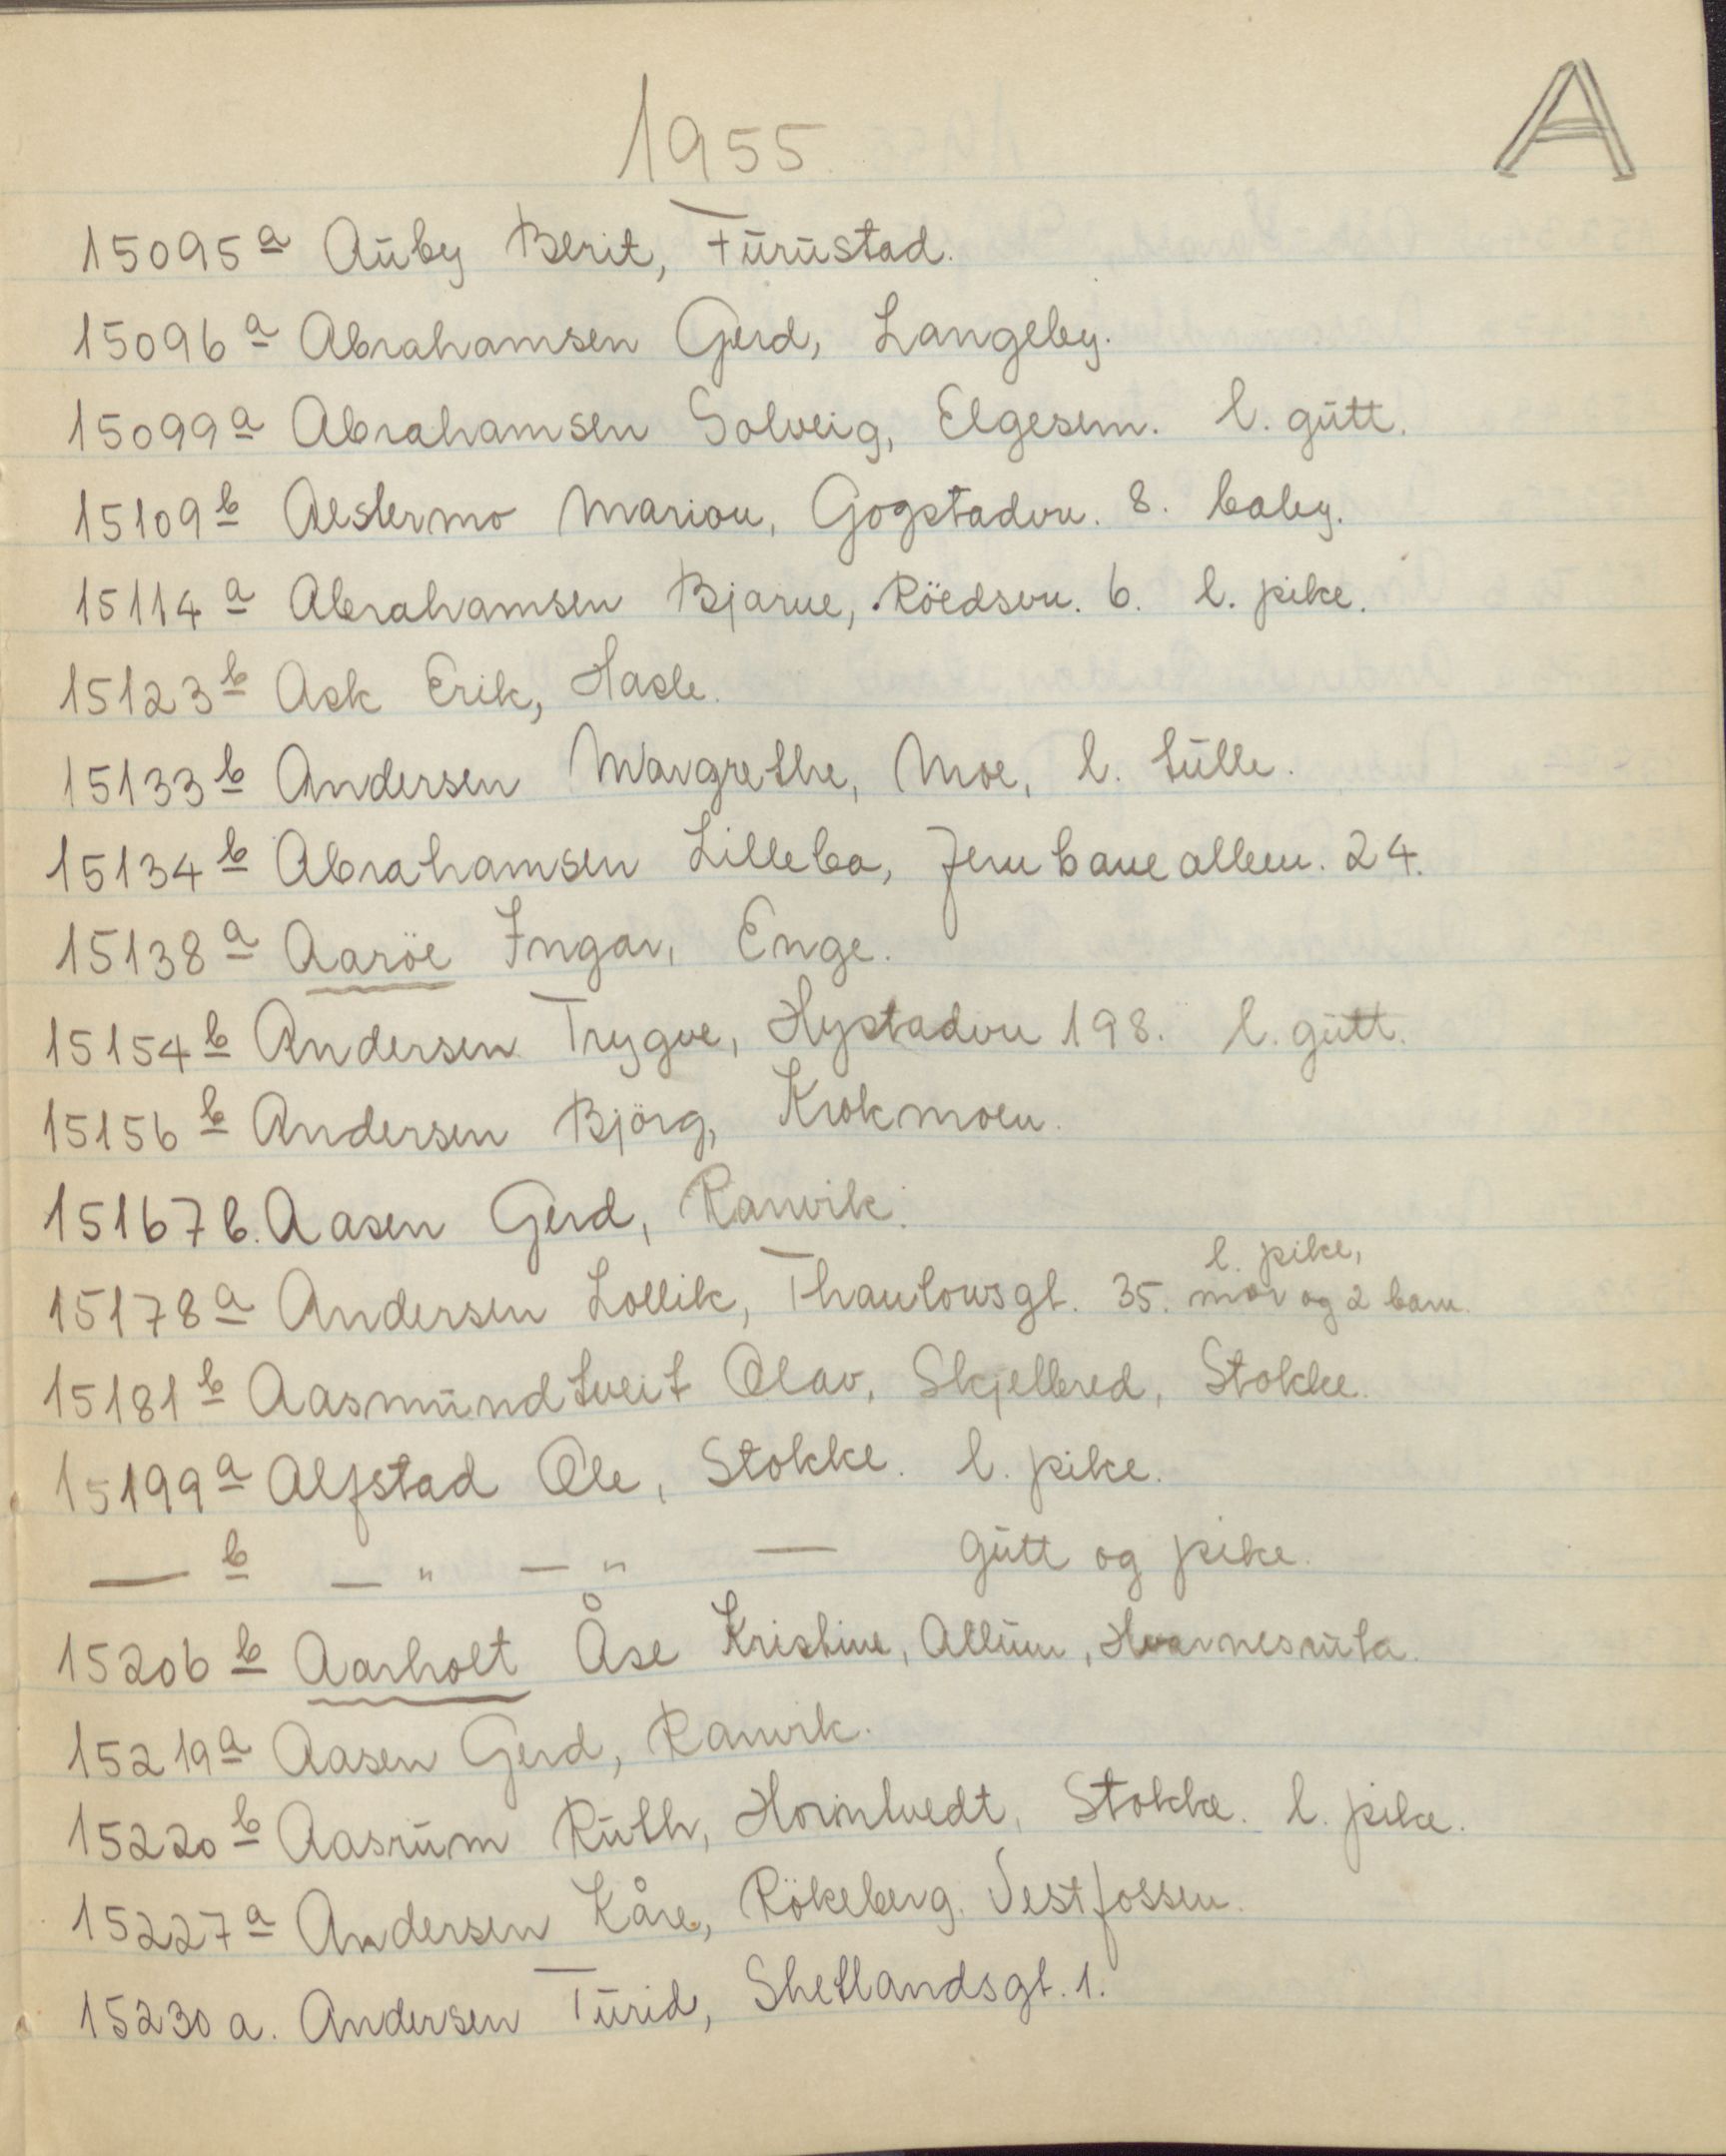 1955
A
15095 a Auby Berit, Furustad.
15096 a Abrahamsen Gerd, Langeby.
15099 a Abrahamsen Solveig, Elgesem. l. gutt.
15109 b Aestermo Marion, Gogstadvn. 8. baby.
15114 a Abrahamsen Bjarne, Röedsvn. 6. l. pike.
15123 b Ask Erik, Hasle.
15133 b Andersen Margrethe, Moe, l. tulle.
15134 b Abrahamsen Lilleba, Jernbanealleen. 24.
15138 a Aaröe Ingar, Enge.
15154 b Andersen Trygve, Hystadvn 198. l. gutt.
15156 b Andersen Björg, Krokmoen.
15167 b. Aasen Gerd, Ranvik.
l. pike,
15178 a Andersen Lollik, Thaulowsgt. 35. mor og 2 barn.
15181 b Aasmundtveit Olav, Skjelbred, Stokke.
15199 a Alfstad Ole, Stokke. l. pike.
— b — " — " — gutt og pike.
15206 b Aarholt Åse Kristine, Allum, Hvarnesruta.
15219 a Aasen Gerd, Ranvik.
15220 b Aasrum Ruth, Horntvedt, Stokke. l. pike.
15227 a Andersen Kåre, Rökeberg. Vestfossen.
15230 a. Andersen Turid, Shetlandsgt. 1.